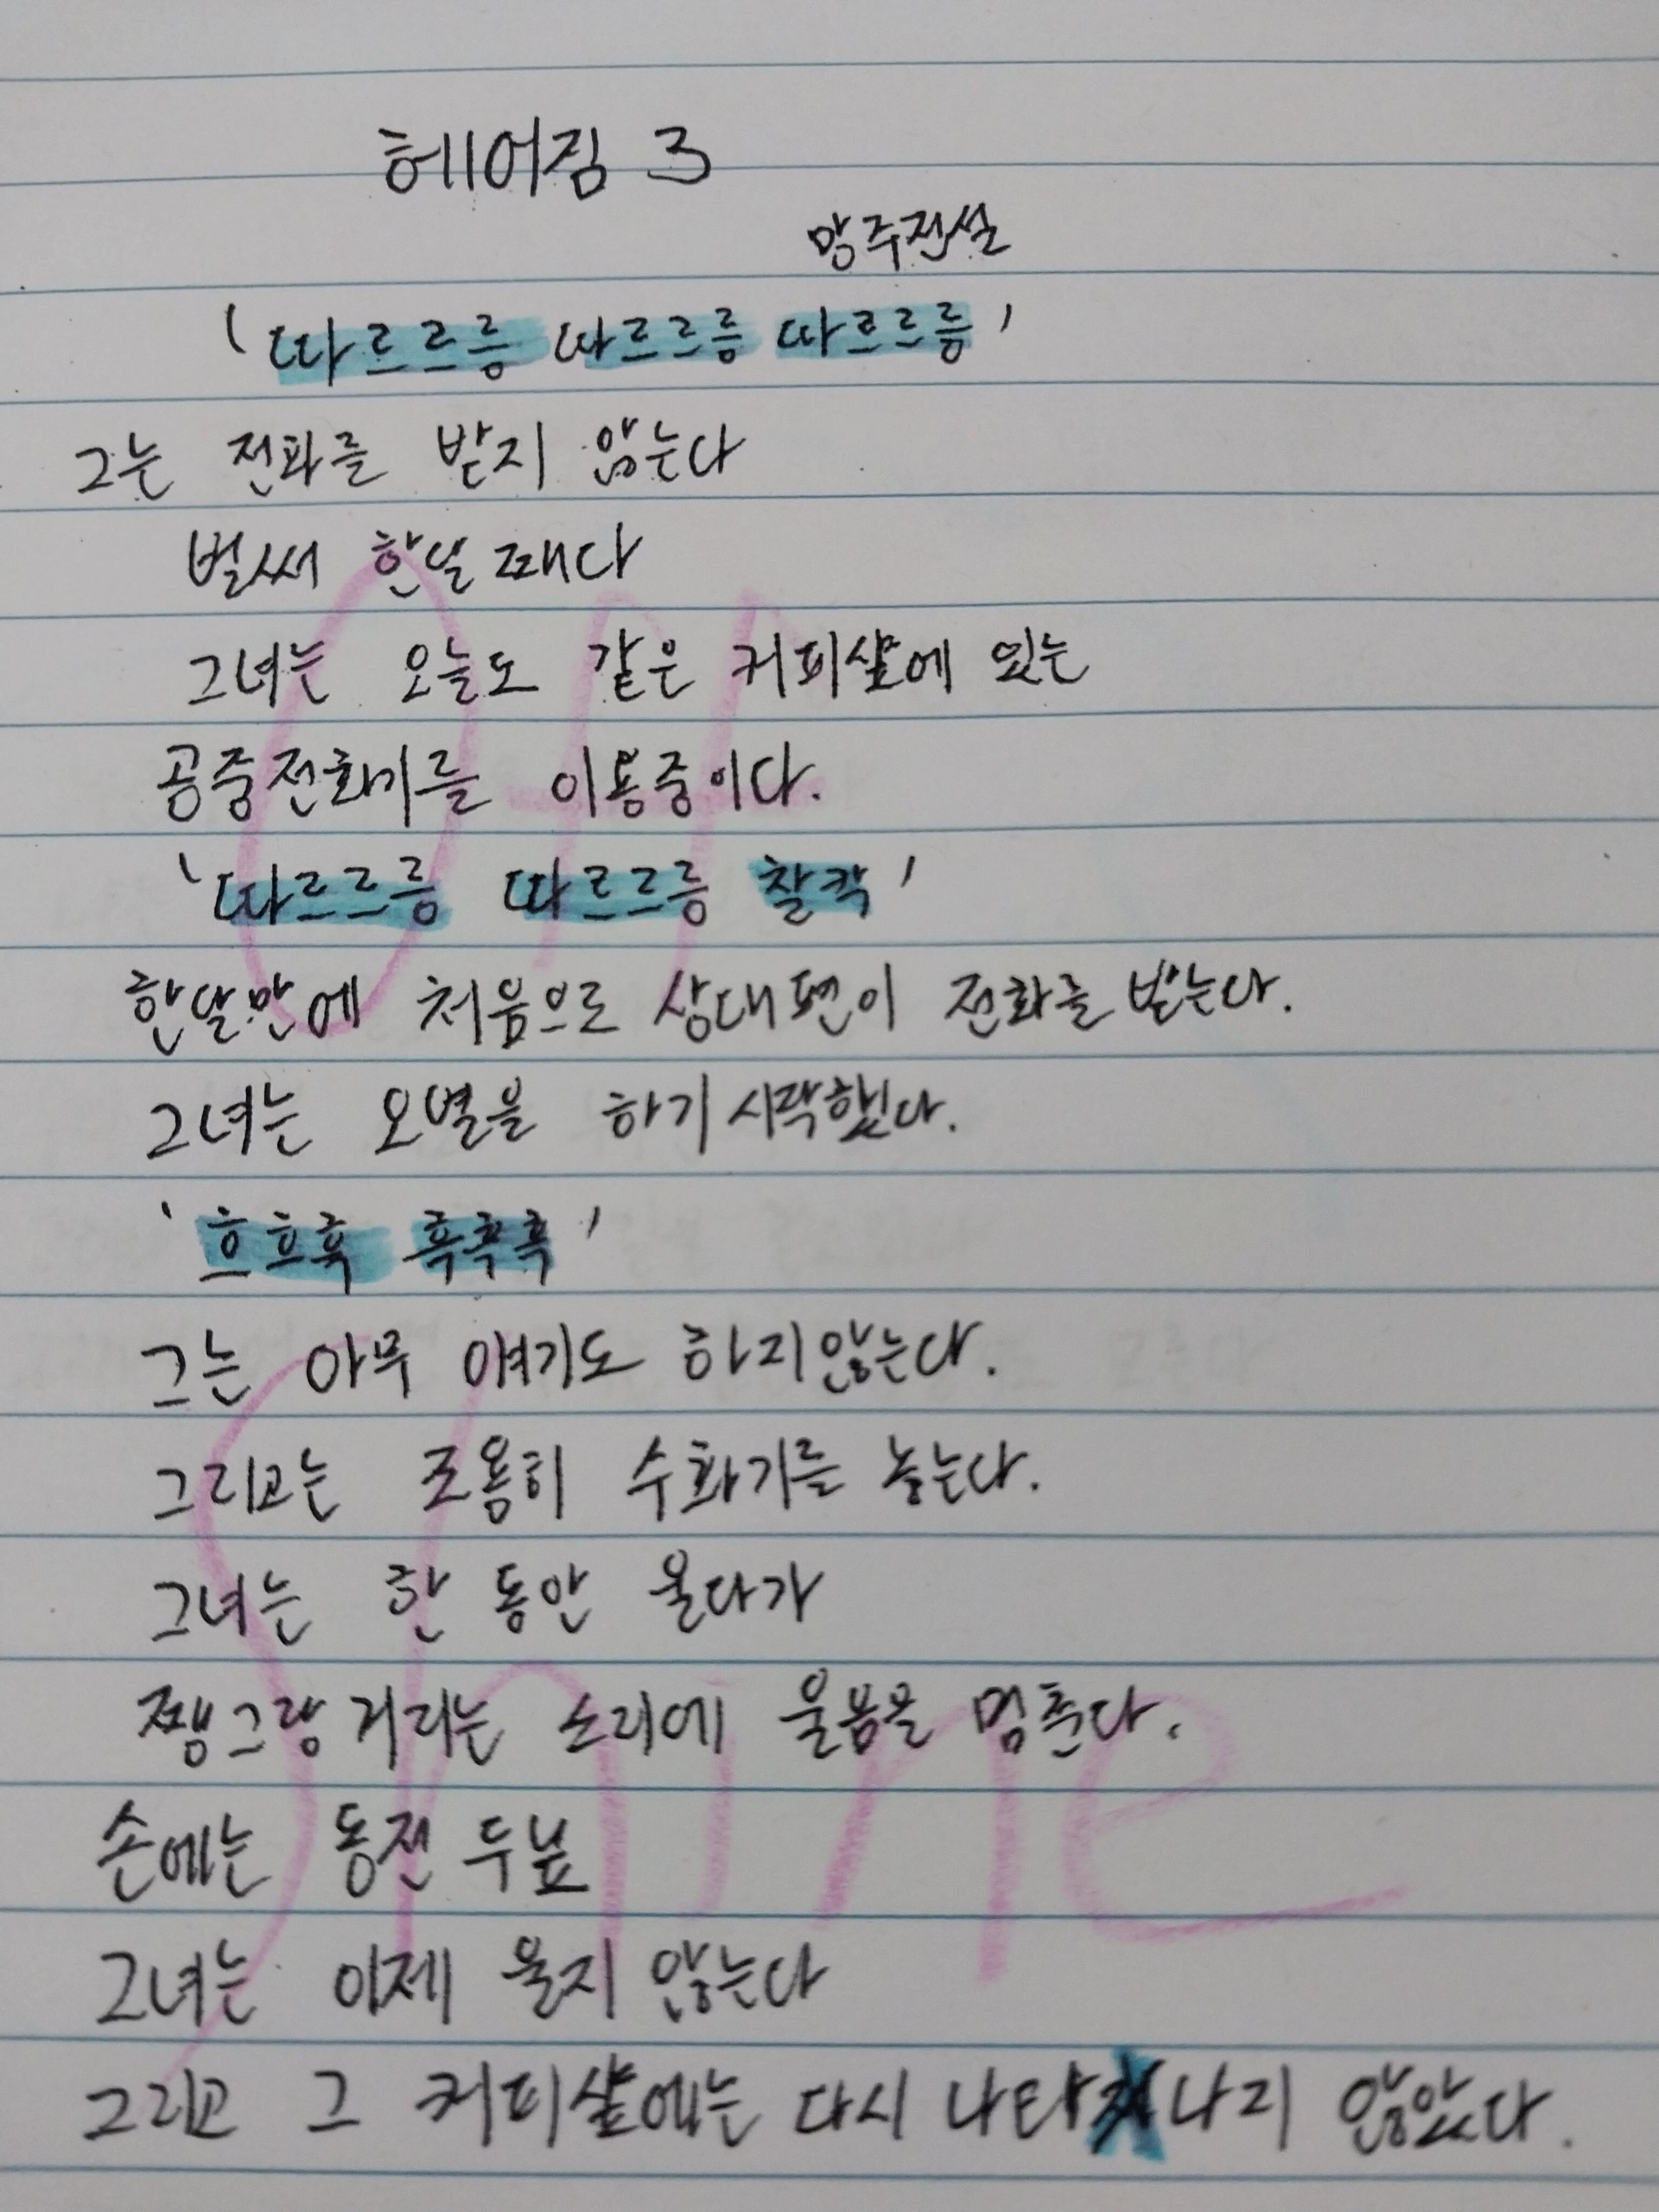 헤어짐 3
망주전설
'따르르릉 따르르릉 따르르릉'
그는 전화를 받지 않는다
벌써 한달 째다
그녀는 오늘도 같은 커피샾에 있는
공중전화기를 이용중이다.
'따르르릉 따르르릉 찰칵'
한달만에 처음으로 상대편이 전화를 받는다.
그녀는 오열을 하기 시작했다.
'흐흐흑 흑흑흑'
그는 아무 얘기도 하지않는다.
그리고는 조용히 수화기를 놓는다.
그녀는 한 동안 울다가
쨍그랑 거리는 소리에 울음을 멈춘다.
손에는 동전 두닢
그녀는 이제 울지 않는다
그리고 그 커피샾에는 다시 나타나지 않았다.
OH
Shine